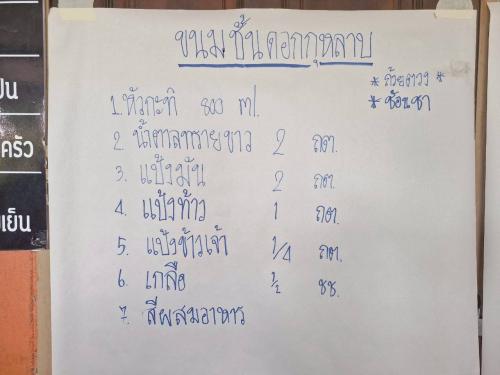 ขนมชั้นดอกกุหลาบ
* ถ้วยตวง *
* ช้อนชา
1. หัวกะทิ 800 ml.
2. น้ำตาลทรายขาว 2 ถต.
3. แป้งมัน 2 ถต.
4. แป้งท้าว 1 ถต.
5. แป้งข้าวเจ้า 1/4 ถต.
6. เกลือ 1/2 ชช.
7. สีผสมอาหาร
ครัว
เย็น